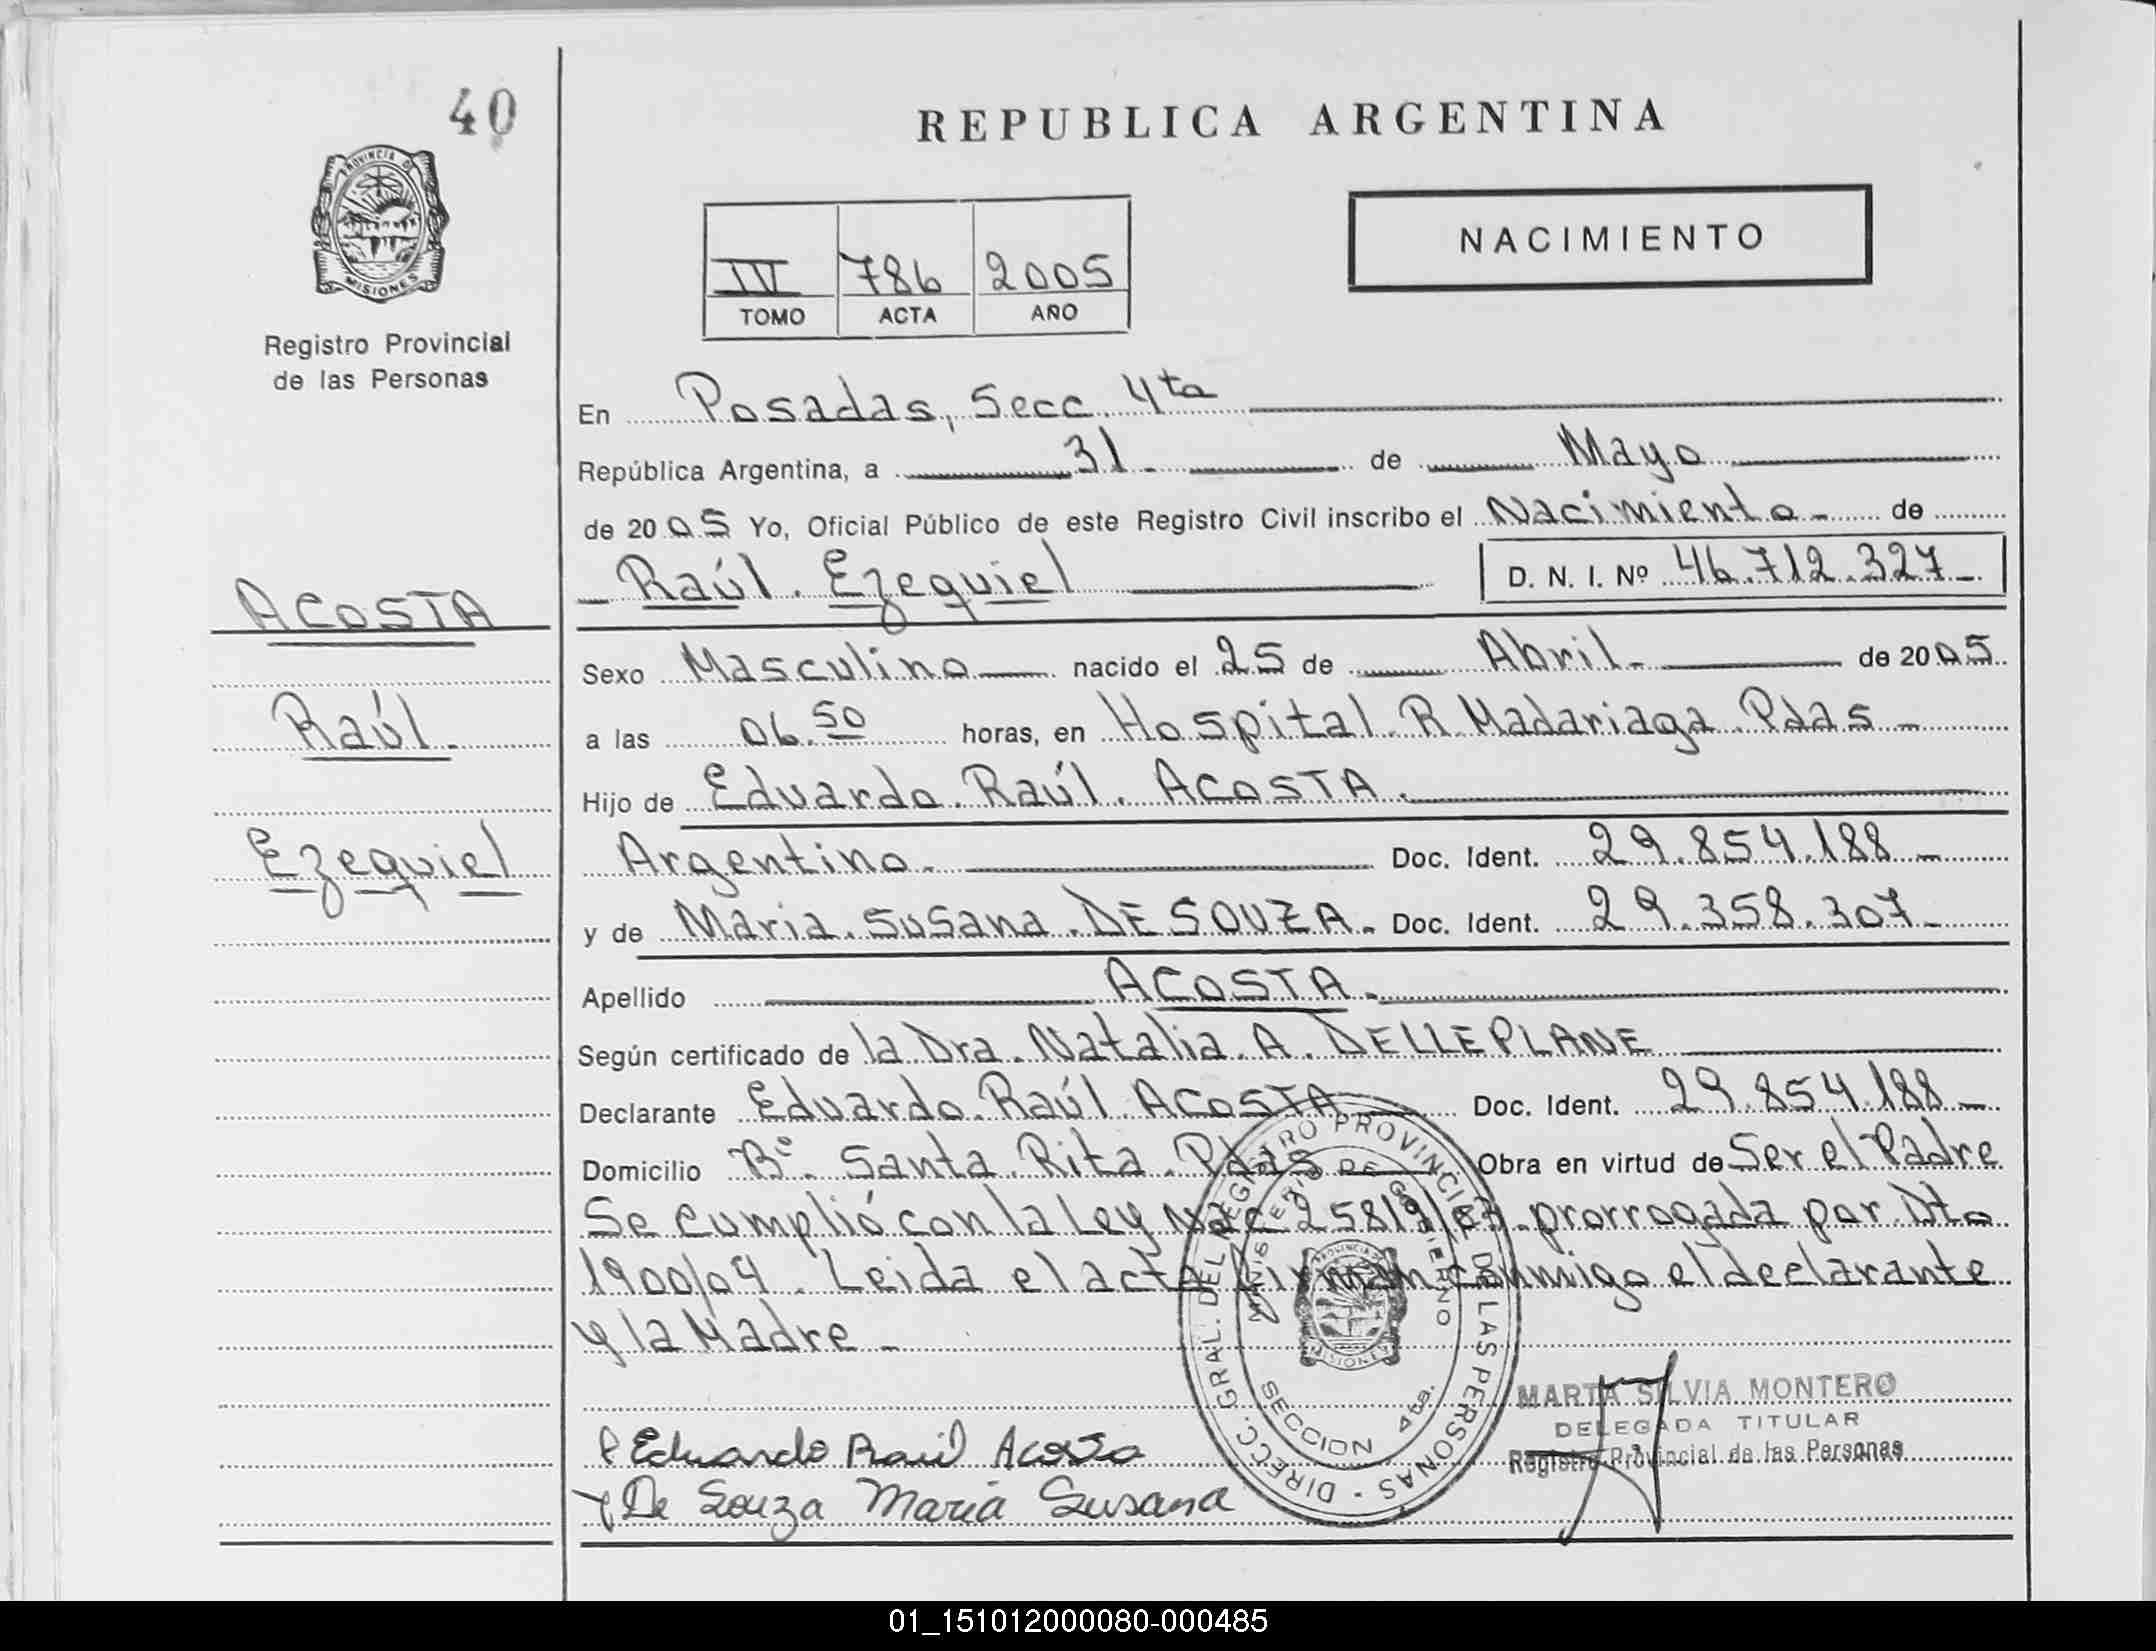 40
PROVINCIA DE
MISIONES
Registro Provincial
de las Personas
REPUBLICA ARGENTINA
IV 786 2005
TOMO ACTA AÑO
NACIMIENTO
En Posadas, Secc. 4ta
República Argentina, a 31 de Mayo
de 2005 Yo, Oficial Público de este Registro Civil inscribo el Nacimiento de
Raúl Ezequiel D. N. I. Nº 46.712.327
ACOSTA
Raúl
Ezequiel
Sexo Masculino nacido el 25 de Abril de 2005
a las 06.50 horas, en Hospital R Madariaga Pdas
Hijo de Eduardo Raúl ACOSTA
Argentino Doc. Ident. 29.854.188
y de Maria Susana DE SOUZA Doc. Ident. 29.358.307
Apellido ACOSTA
Según certificado de la Dra. Natalia A. DELLEPLANE
Declarante Eduardo Raúl ACOSTA Doc. Ident. 29.854.188
Domicilio Bº Santa Rita. Pdas Obra en virtud de Ser el Padre
Se cumplió con la Ley Nac 25819/03 prorrogada por Dto
1900/04. Leida el acta firman conmigo el declarante
y la Madre
DIRECC. GRAL. DEL REGISTRO PROVINCIAL DE LAS PERSONAS
MINISTERIO DE GOBIERNO
PROVINCIA DE
MISIONES
SECCION 4ta.
MARTA SILVIA MONTERO
DELEGADA TITULAR
Registro Provincial de las Personas
Eduardo Raúl Acosta
De Souza Maria Susana
01_151012000080-000485